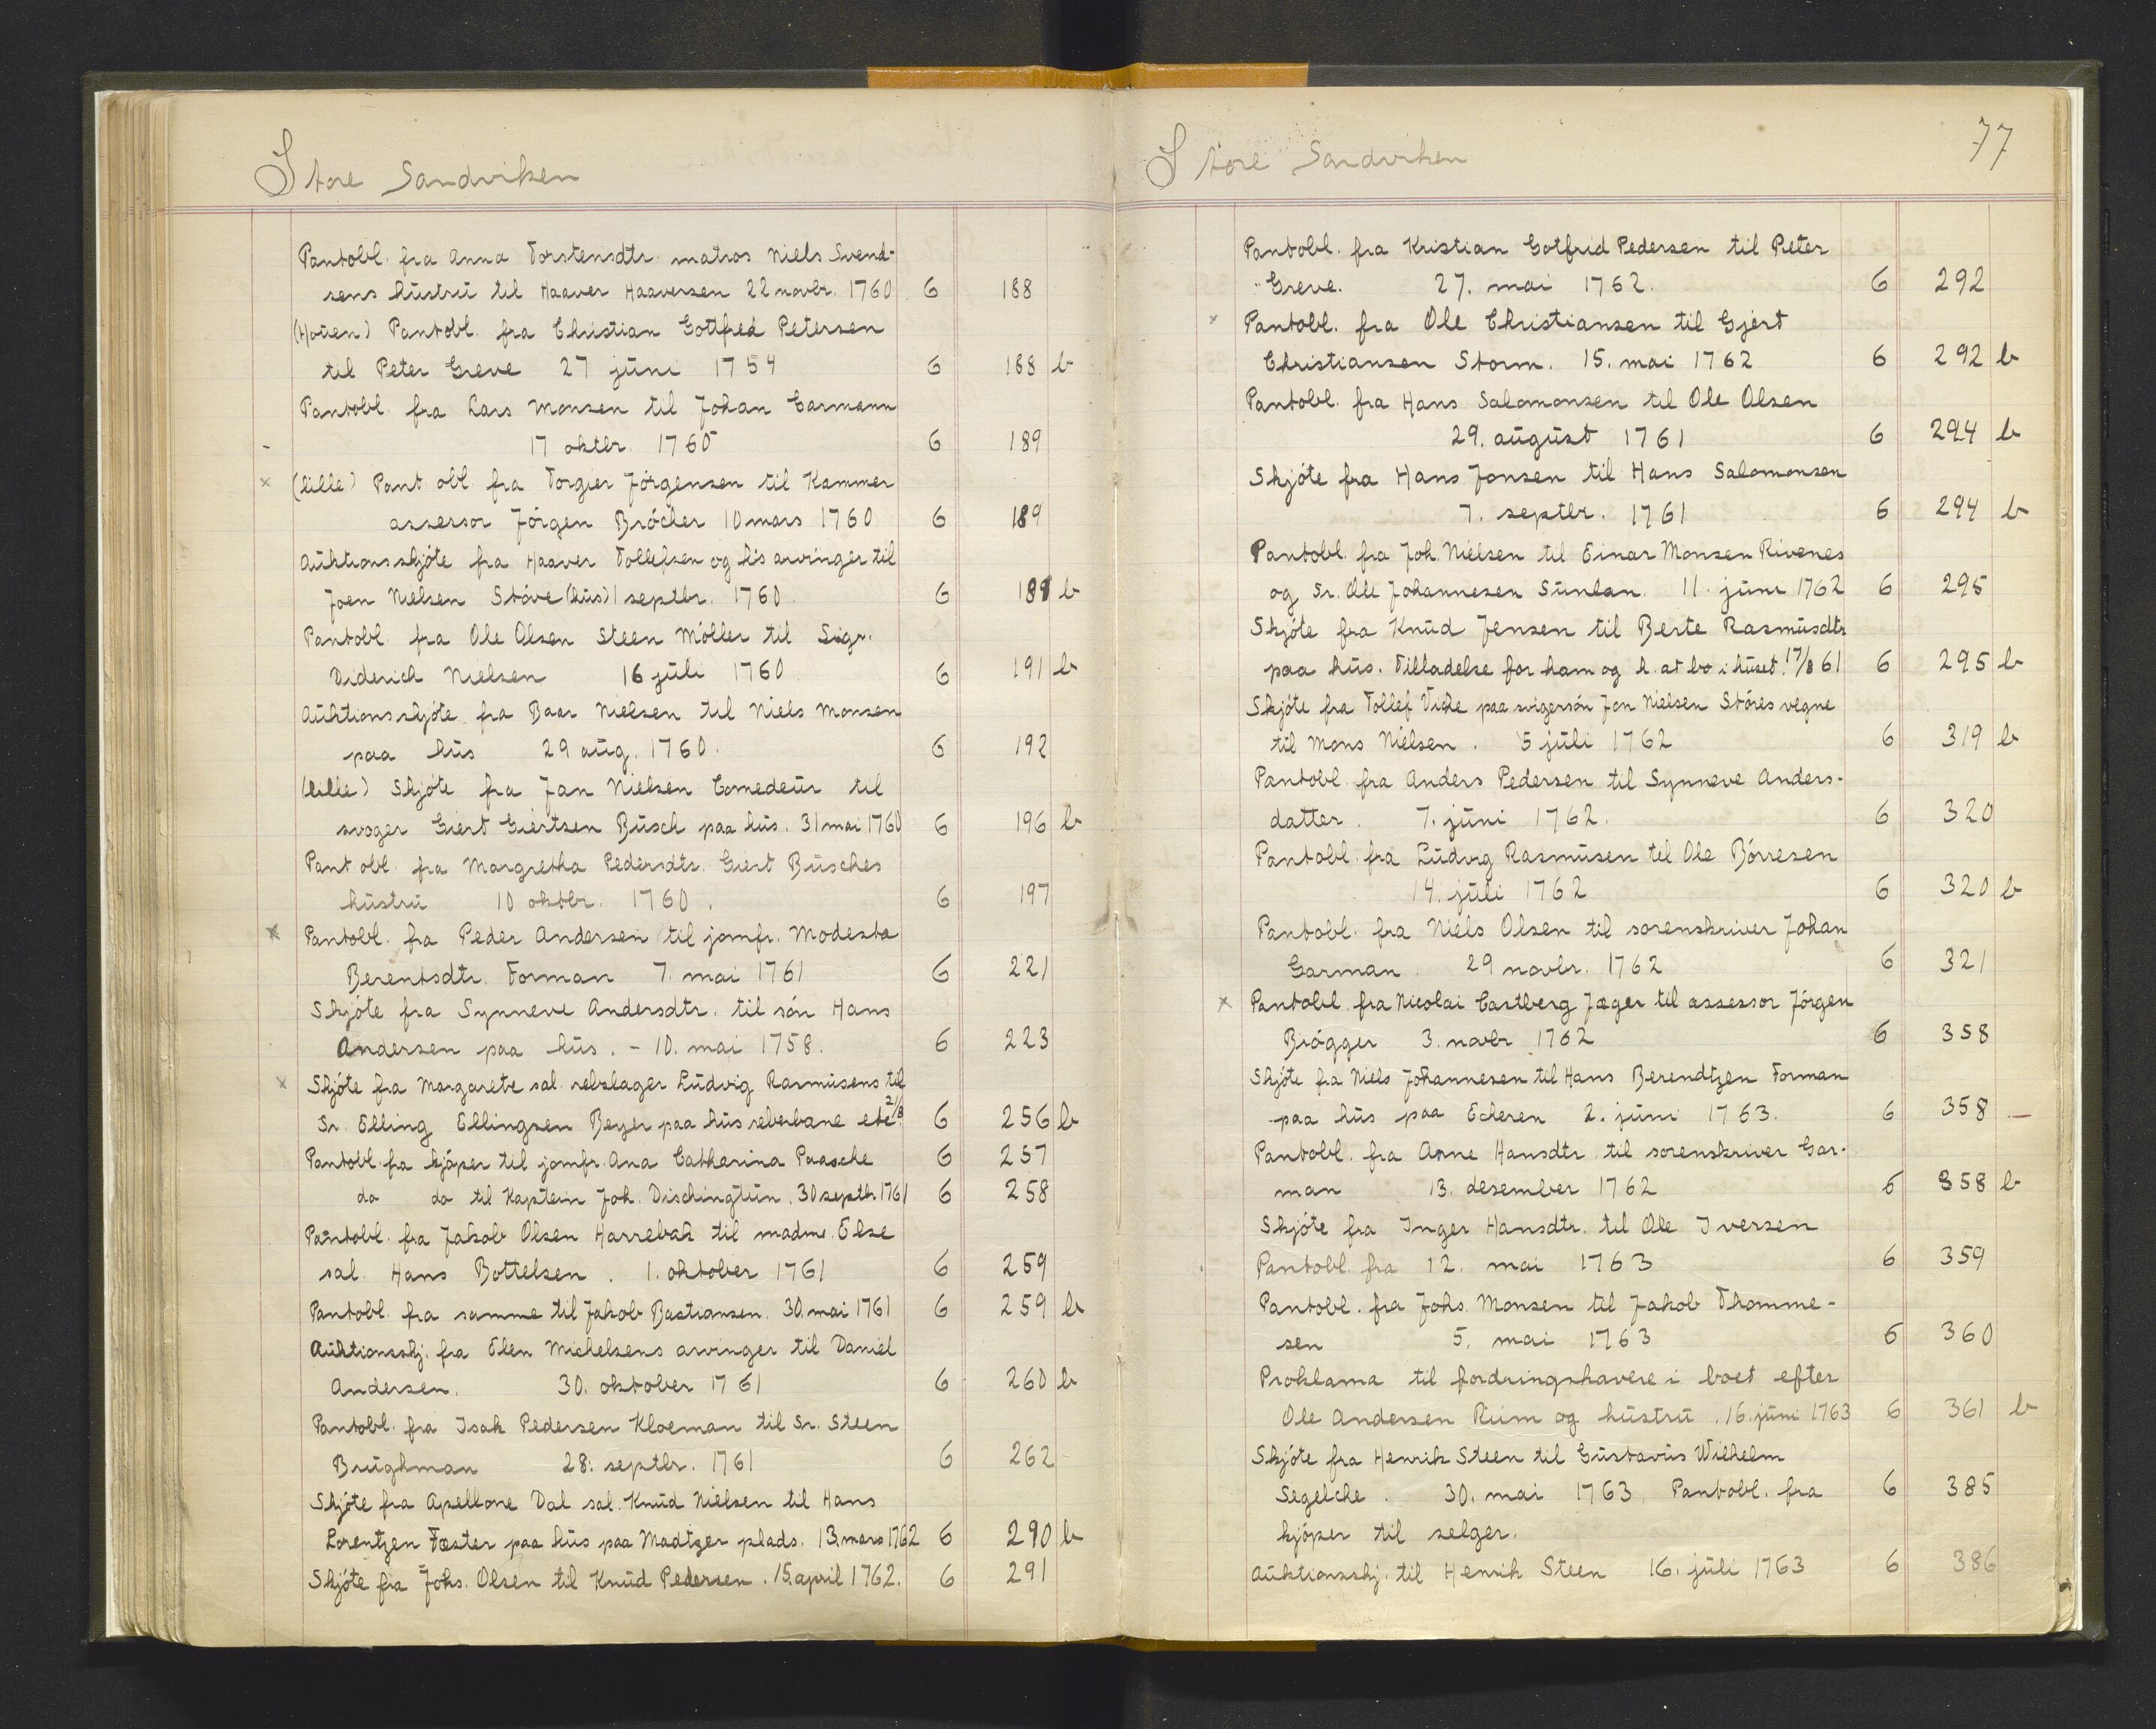 Store Sandviken
Pantobl. fra Anna Torstensdtr. matros Niels Svend-
sens hustru til Haaver Haaversen 22 novbr. 1760 6 188
(Houen) Pantobl. fra Christian Gottfred Petersen
til Peter Greve 27 juni 1754 6 188 b
Pantobl. fra Lars Monsen til Johan Garmann
- 17 oktbr. 1760 6 189
x (lille) Pant obl. fra Torgier Jörgensen til Kammer
assersor Jörgen Bröcher 10 mars 1760 6 189
Auktionsskjöte fra Haaver Tollefsen og hs arvinger til
Joen Nielsen Störe (hus) 1 septbr. 1760. 6 189 b
Pantobl. fra Ole Olsen Steen Möller til Sigr.
Diderich Nielsen 16 juli 1760. 6 191 b
Auktionsskjöte fra Baar Nielsen til Niels Monsen
paa hus 29 aug. 1760. 6 192
(lille) Skjöte fra Jan Nielsen Comedeur til
svoger Giert Giertsen Busch paa hus. 31 mai 1760 6 196 b
Pant obl. fra Margretha Pedersdtr. Giert Busches
hustru 10 oktbr. 1760. 6 197
x Pantobl. fra Peder Andersen til jomfr. Modesta
Berentsdtr. Forman 7. mai 1761 6 221
Skjöte fra Synneve Andersdtr. til sön Hans
Andersen paa hus. - 10. mai 1758. 6 223
x Skjöte fra Margarete sal. rebslager Ludvig Rasmusens til
Sr. Elling Ellingsen Beyer paa hus reberbane etc. 2/8 6 256 b
Pantobl. fra kjöper til jomfr. Ana Catharina Paasche 6 257
do do til Kaptein Joh. Dischingtun. 30 septbr. 1761 6 258
Pantobl. fra Jakob Olsen Harrebak til madme. Else
sal. Hans Bottelsen. 1. oktober 1761 6 259
Pantobl. fra samme til Jakob Bastiansen. 30. mai 1761 6 259 b
Auktionsskj. fra Elen Michelsens arvinger til Daniel
Andersen. 30. oktober 1761 6 260 b
Pantobl. fra Isak Pedersen Kloeman til Sr. Steen
Brughman 28. septbr. 1761 6 262
Skjöte fra Apellone Dal sal. Knud Nielsen til Hans
Lorentzen Fæster paa hus paa Madtzer plads. 13. mars 1762 6 290 b
Skjöte fra Johs. Olsen til Knud Pedersen. 15. april 1762. 6 291
Store Sandviken 77
Pantobl. fra Kristian Gotfrid Pedersen til Peter
Greve. 27. mai 1762. 6 292
x Pantobl. fra Ole Christiansen til Gjert
Christiansen Storm. 15. mai 1762 6 292 b
Pantobl. fra Hans Salomonsen til Ole Olsen
29. august 1761 6 294 b
Skjöte fra Hans Jonsen til Hans Salomonsen
7. septbr. 1761 6 294 b
Pantobl. fra Joh. Nielsen til Einar Monsen Rivenes
og Sr. Ole Johannesen Sunlan. 11. juni 1762 6 295
Skjöte fra Knud Jensen til Berte Rasmusdtr
paa hus. Tilladelse for ham og h. at bo i huset. 17/8 61 6 295 b
Skjöte fra Tollef Vicke paa svigersön Jon Nielsen Störes vegne
til Mons Nielsen. 5 juli 1762 6 319 b
Pantobl. fra Anders Pedersen til Synneve Anders-
datter. 7. juni 1762. 6 320
Pantobl. fra Ludvig Rasmusen til Ole Börresen
14. juli 1762 6 320 b
Pantobl. fra Niels Olsen til sorenskriver Johan
Garman. 29 novbr. 1762 6 321
x Pantobl. fra Nicolai Castberg Jæger til assessor Jörgen
Brögger 3. novbr. 1762 6 358
Skjöte fra Niels Johannesen til Hans Berendtzen Forman
paa hus paa Eckeren 2. juni 1763. 6 358 -
Pantobl. fra Anne Hansdtr. til sorenskriver Gar-
man 13. desember 1762 6 358 b
Skjöte fra Inger Hansdtr. til Ole Iversen
Pantobl. fra 12. mai 1763 6 359
Pantobl. fra Johs. Monsen til Jakob Thomme-
sen 5. mai 1763 6 360
Proklama til fordringshavere i boet efter
Ole Andersen Riim og hustru. 16. juni 1763 6 361 b
Skjöte fra Henrik Steen til Gustavus Wilhelm
Segelche. 30. mai 1763. Pantobl. fra 6 385
kjöper til selger.
Auktionsskj. til Henrik Steen 16. juli 1763 6 386